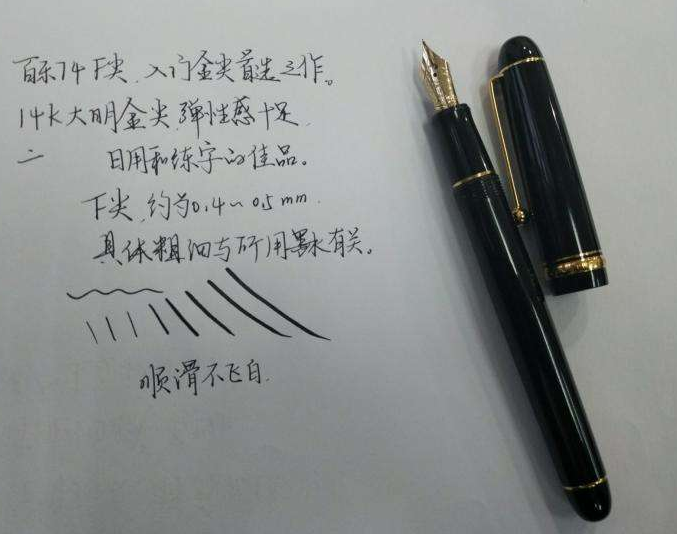 百乐74 F尖，入门金尖首选之作。
14K大明金尖，弹性感十足.
二 日用和练字的佳品。
F尖，约为0.4~0.5mm.
具体粗细与所用墨水有关。
顺滑不飞白.